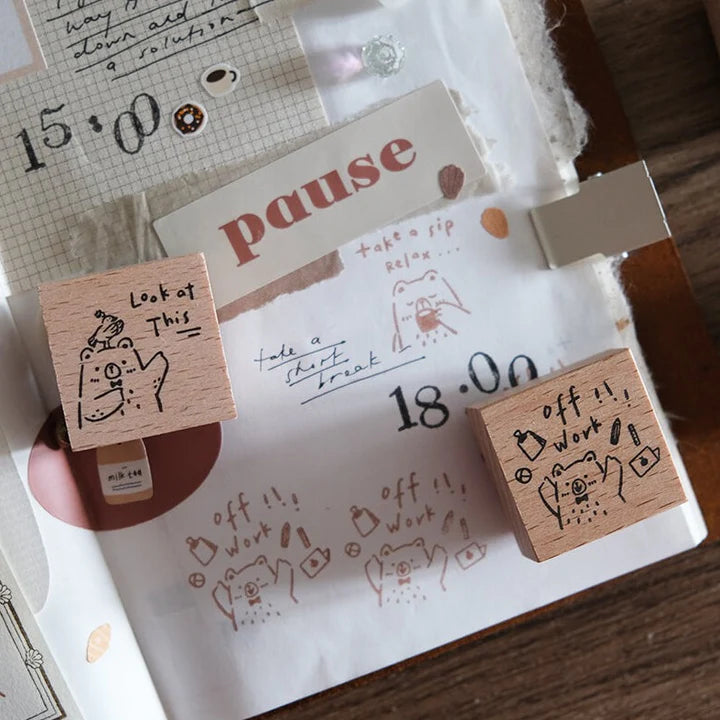 way
down and
a solution
15:00
pause
take a sip
Relax...
Look at
This
take a
short
break
18:00
off !!!
work
milk tea
off !!!
work
off !!!
work